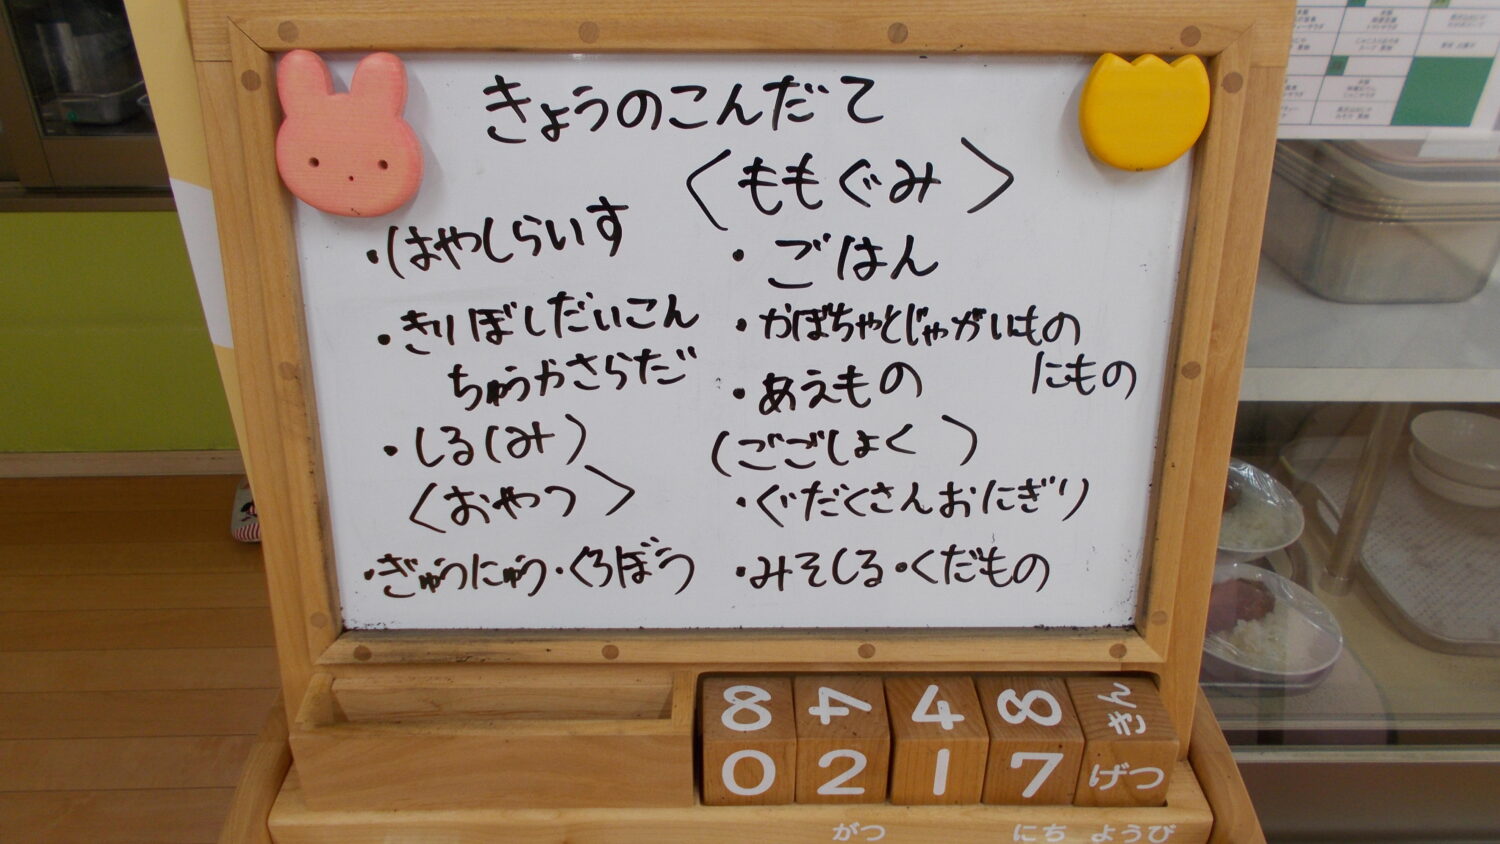 きょうのこんだて
・はやしらいす
・きりぼしだいこん
ちゅうかさらだ
・しる(み)
〈おやつ〉
・ぎゅうにゅう・くろぼう
〈ももぐみ〉
・ごはん
・かぼちゃとじゃがいもの
にもの
・あえもの
(ごごしょく)
・ぐだくさんおにぎり
・みそしる・くだもの
8 4 4 8 きん
0 2 1 7 げつ
がつ にち ようび